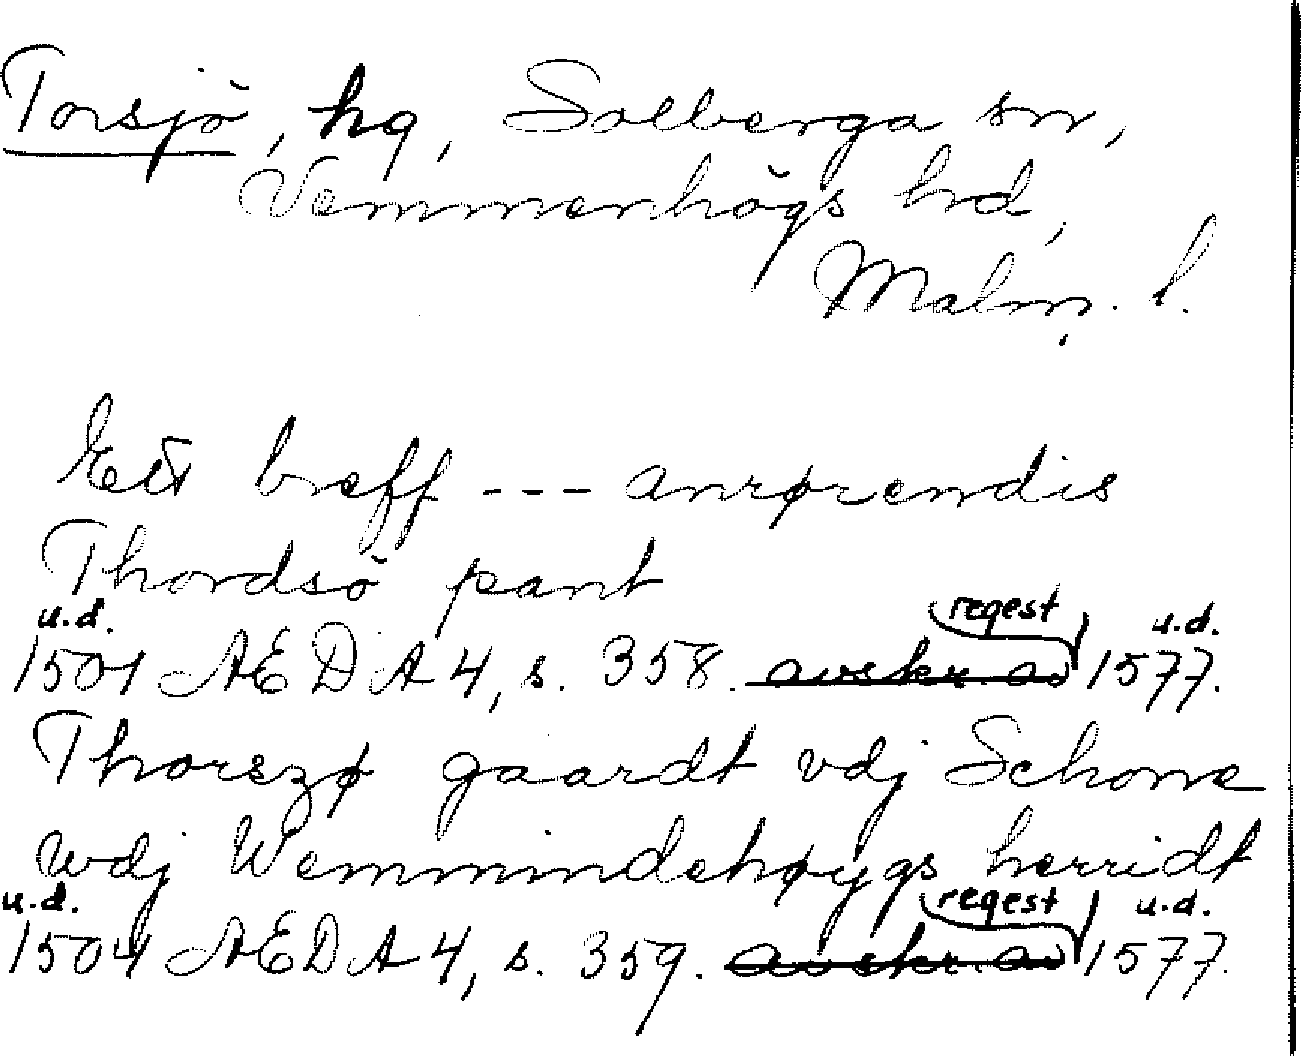 Torsjö, hg, Solberga sn,
Vemmenhögs hd,
Malm. l.
Ett breff --- anrørendis
Thordsö pant
u.d. regest u.d.
1501 AEDA 4, s. 358. avskr. av 1577.
Thorszø gaardt vdj Schone
wdj Wemmindehøygs herridt
u.d. regest u.d.
1504 AEDA 4, s. 359. avskr. av 1577.